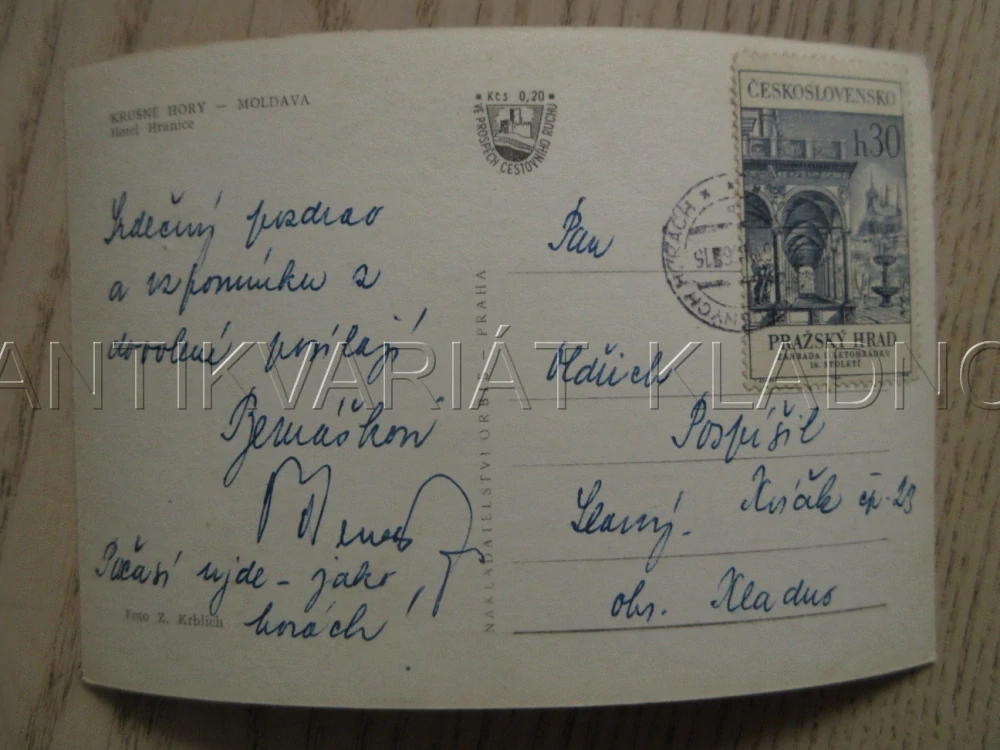 KRUŠNÉ HORY — MOLDAVA
Hotel Hranice
* Kčs 0,20 *
VE PROSPĚCH CESTOVNÍHO RUCHU
ČESKOSLOVENSKO
h30
PRAŽSKÝ HRAD
ZAHRADA U LETOHRÁDKU
16. STOLETÍ
Srdečný pozdrav
a vzpomínku z
dovolené posílají
Bernáškovi
Počasí ujde - jako
horách!
Foto Z. Krblich
NAKLADATELSTVÍ ORBIS — PRAHA
Pan
Oldřich
Pospíšil
Slaný - Kvíček čp. 23
obs. Kladno
ANTIKVARIÁT KLADNO